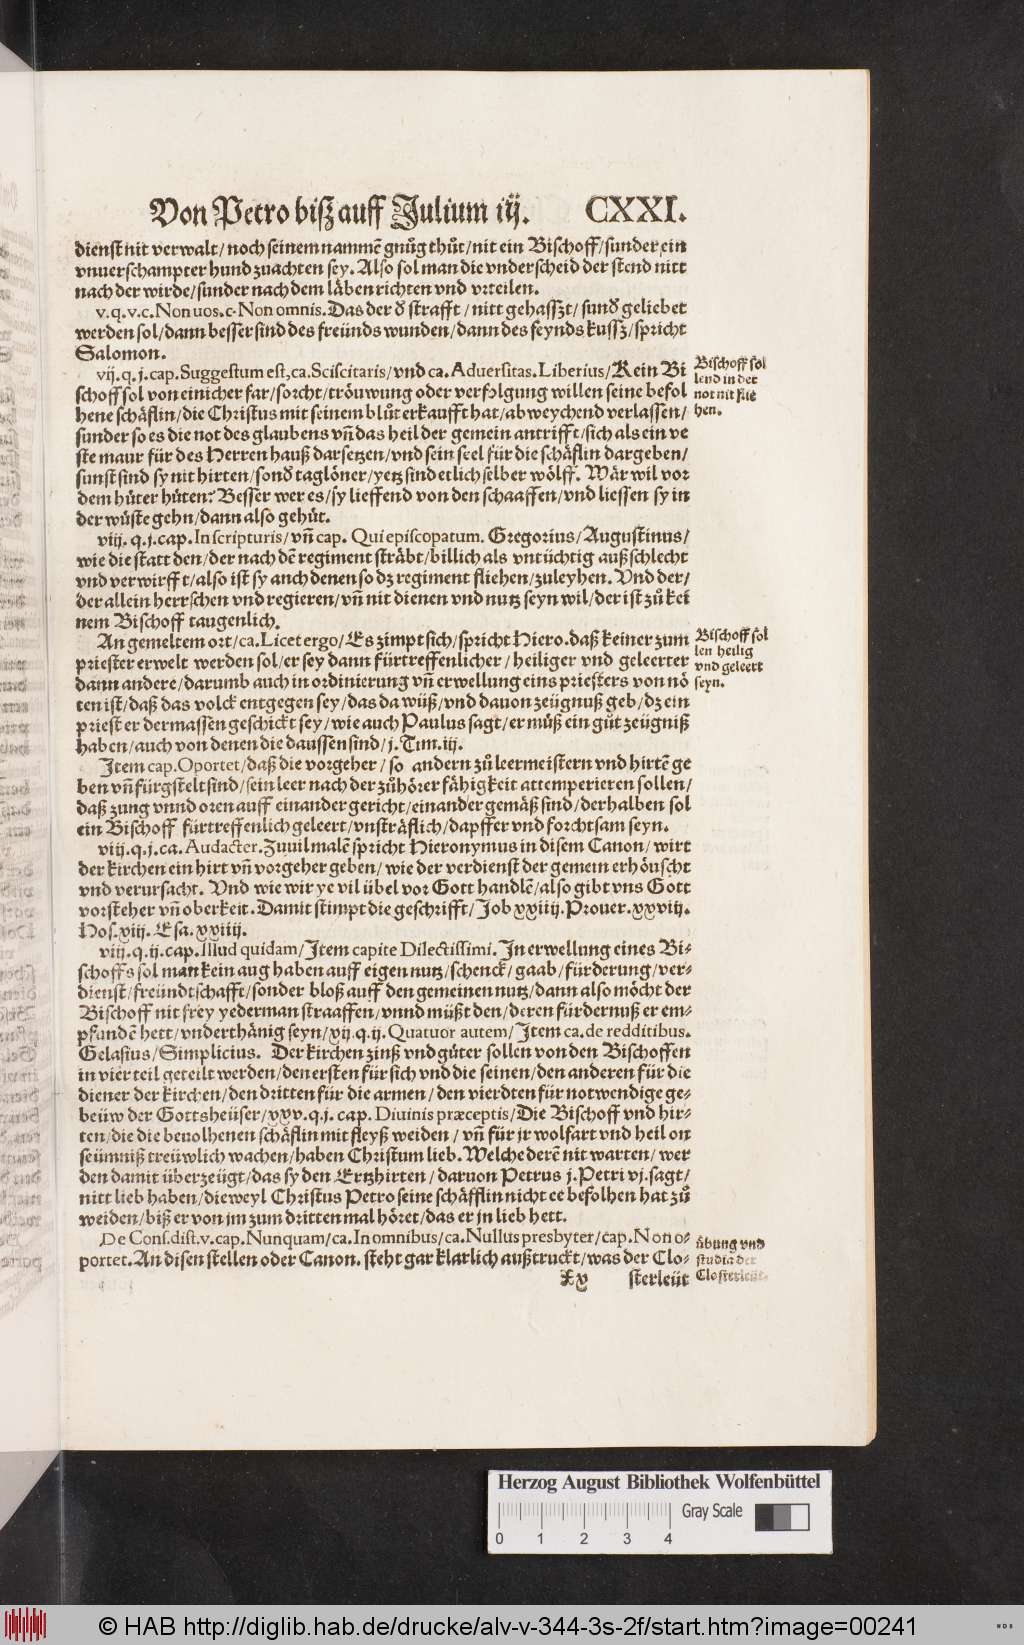 Von Petro biß auff Julium iij. CXXI.
dienst nit verwalt/ noch seinem nammẽ gnůg thůt/ nit ein Bischoff/ sunder ein
vnuerschampter hund zuachten sey. Also sol man die vnderscheid der stend nitt
nach der wirde/ sunder nach dem läben richten vnd vrteilen.
v.q.v.c. Non uos.c. Non omnis. Das der đ strafft/ nitt gehasszt/ sunđ geliebet
werden sol/ dann besser sind des freünds wunden/ dann des feynds kussz/ spricht
Salomon.
vij.q.j.cap. Suggestum est, ca. Sciscitaris/ vnd ca. Aduersitas. Liberius/ Kein Bi
schoff sol von einicher far/ forcht/ tröuwung oder verfolgung willen seine befol
hene schäflin/ die Christus mit seinem blůt erkaufft hat/ abweychend verlassen/
sunder so es die not des glaubens vñ das heil der gemein antrifft/ sich als ein ve
ste maur für des Herren hauß darsetzen/ vnd sein seel für die schäflin dargeben/
sunst sind sy nit hirten/ sonđ taglöner/ yetz sind etlich selber wölff. Wär wil vor
dem hüter hüten: Besser wer es/ sy lieffend von den schaaffen/ vnd liessen sy in
der wüste gehn/ dann also gehüt.
viij. q.j.cap. In scripturis/ vñ cap. Qui episcopatum. Gregorius/ Augustinus/
wie die statt den/ der nach dẽ regiment sträbt/ billich als vntüchtig außschlecht
vnd verwirfft/ also ist sy auch denen so dz regiment fliehen/ zuleyhen. Vnd der/
der allein herrschen vnd regieren/ vñ nit dienen vnd nutz seyn wil/ der ist zů kei
nem Bischoff taugenlich.
An gemeltem ort/ ca. Licet ergo/ Es zimpt sich/ spricht Hiero. daß keiner zum
priester erwelt werden sol/ er sey dann fürtreffenlicher/ heiliger vnd geleerter
dann andere/ darumb auch in ordinierung vñ erwellung eins priesters von nö
ten ist/ daß das volck entgegen sey/ das da wüß/ vnd dauon zeügnuß geb/ dz ein
priester dermassen geschickt sey/ wie auch Paulus sagt/ er můß ein gůt zeügniß
haben/ auch von denen die daussen sind/ j. Tim. iij.
Item cap. Oportet/ daß die vorgeher/ so andern zů leermeistern vnd hirtẽ ge
ben vñ fürgstelt sind/ sein leer nach der zůhörer fähigkeit attemperieren sollen/
daß zung vnnd oren auff einander gericht/ einander gemäß sind/ derhalben sol
ein Bischoff fürtreffenlich geleert/ vnsträflich/ dapffer vnd forchtsam seyn.
viij.q.j.ca. Audacter. Zuuil malẽ spricht Hieronymus in disem Canon/ wirt
der kirchen ein hirt vñ vorgeher geben/ wie der verdienst der gemein erhöuscht
vnd verursacht. Vnd wie wir ye vil übel vor Gott handlẽ/ also gibt vns Gott
vorsteher vñ oberkeit. Damit stimpt die geschrifft/ Job xxiiij. Prouer. xxviij.
Hos. xiij. Esa. xxiiij.
viij.q.ij.cap. Illud quidam/ Item capite Dilectissimi. In erwellung eines Bi-
schoffs sol man kein aug haben auff eigen nutz/ schenck/ gaab/ fürderung/ ver-
dienst/ freündtschafft/ sonder bloß auff den gemeinen nutz/ dann also möcht der
Bischoff nit frey yederman straaffen/ vnnd müßt den/ deren fürdernuß er em-
pfundẽ hett/ vnderthänig seyn/ xij.q.ij. Quatuor autem/ Item ca. de redditibus.
Gelasius/ Simplicius. Der kirchen zinß vnd güter sollen von den Bischoffen
in vier teil geteilt werden/ den ersten für sich vnd die seinen/ den anderen für die
diener der kirchen/ den dritten für die armen/ den vierdten für notwendige ge-
beüw der Gottsheüser/ xxv.q.j. cap. Diuinis præceptis/ Die Bischoff vnd hir-
ten/ die die beuolhenen schäflin mit fleyß weiden/ vñ für jr wolfart vnd heil on
seümniß treüwlich wachen/ haben Christum lieb. Welche derẽ nit warten/ wer
den damit überzeügt/ das sy den Ertzhirten/ daruon Petrus j. Petri vj. sagt/
nitt lieb haben/ dieweyl Christus Petro seine schäfflin nicht ee befolhen hat zů
weiden/ biß er von im zum dritten mal höret/ das er jn lieb hett.
De Cons. dist. v. cap. Nunquam/ ca. In omnibus/ ca. Nullus presbyter/ cap. Non o-
portet. An disen stellen oder Canon. steht gar klarlich außtruckt/ was der Clo-
Xx sterleüt
Bischoff sol
lend in der
not nit flie
hen.
Bischoff söl
len heilig
vnd geleert
seyn.
übung vnd
studia der
Closterleüt.
Herzog August Bibliothek Wolfenbüttel
0 1 2 3 4
Gray Scale
© HAB http://diglib.hab.de/drucke/alv-v-344-3s-2f/start.htm?image=00241